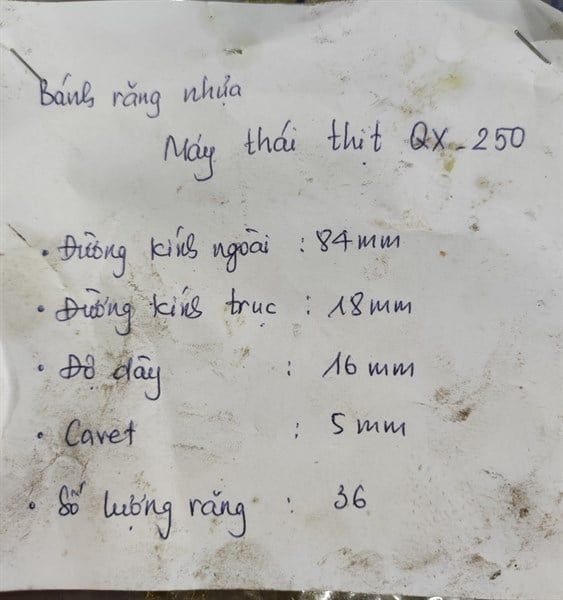 Bánh răng nhựa
Máy thái thịt QX-250
• Đường kính ngoài : 84mm
• Đường kính trục : 18mm
• Độ dày : 16mm
• Cavet : 5mm
• Số lượng răng : 36